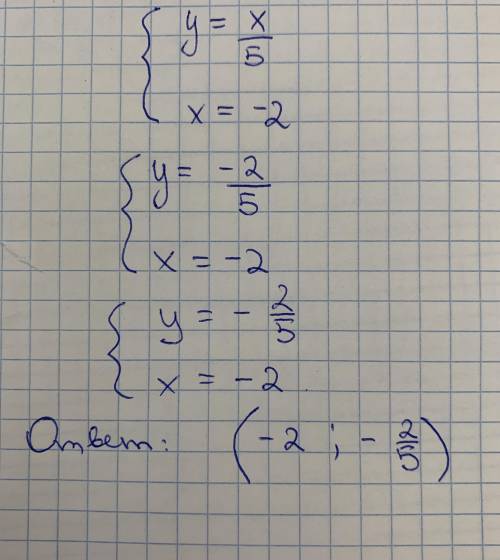 { y = x/5
x = -2
{ y = -2/5
x = -2
{ y = - 2/5
x = -2
Ответ: (-2 ; - 2/5)